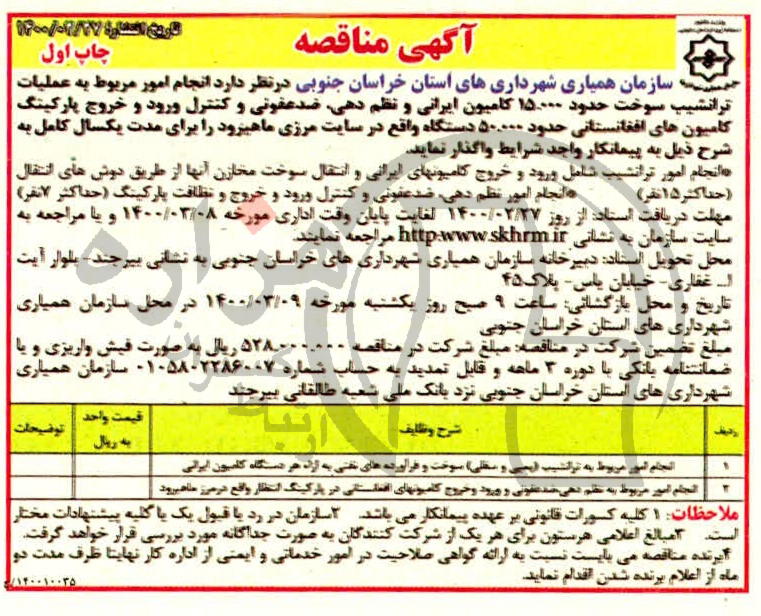 تاریخ انتشار: ۱۴۰۰/۰۲/۲۷
چاپ اول
آگهی مناقصه
سازمان همیاری شهرداری های استان خراسان جنوبی درنظر دارد انجام امور مربوط به عملیات
ترانشیپ سوخت حدود ۱۵.۰۰۰ کامیون ایرانی و نظم دهی، ضدعفونی و کنترل ورود و خروج پارکینگ
کامیون های افغانستانی حدود ۵۰.۰۰۰ دستگاه واقع در سایت مرزی ماهیرود را برای مدت یکسال کامل به
شرح ذیل به پیمانکار واجد شرایط واگذار نماید.
*انجام امور ترانشیپ شامل ورود و خروج کامیونهای ایرانی و انتقال سوخت مخازن آنها از طریق دوش های انتقال
(حداکثر۱۵نفر) *انجام امور نظم دهی، ضدعفونی و کنترل ورود و خروج و نظافت پارکینگ (حداکثر ۷نفر)
مهلت دریافت اسناد: از روز ۱۴۰۰/۰۲/۲۷ لغایت پایان وقت اداری مورخه ۱۴۰۰/۰۳/۰۸ و یا مراجعه به
سایت سازمان به نشانی http:www.skhrm.ir مراجعه نمایند.
محل تحویل اسناد: دبیرخانه سازمان همیاری شهرداری های خراسان جنوبی به نشانی بیرجند- بلوار آیت
ا... غفاری- خیابان یاس- پلاک۴۵
تاریخ و محل بازگشائی: ساعت ۹ صبح روز یکشنبه مورخه ۱۴۰۰/۰۳/۰۹ در محل سازمان همیاری
شهرداری های استان خراسان جنوبی
مبلغ تضمین شرکت در مناقصه: مبلغ شرکت در مناقصه ۵۲۸.۰۰۰.۰۰۰ ریال صورت فیش واریزی و یا
ضمانتنامه بانکی با دوره ۳ ماهه و قابل تمدید به حساب شماره ۰۱۰۵۸۰۲۲۸۶۰۰۷ سازمان همیاری
شهرداری های استان خراسان جنوبی نزد بانک ملی شعبه طالقانی بیرجند
ردیف شرح وظایف قیمت واحد به ریال توضیحات
۱ انجام امور مربوط به ترانشیپ سوخت و فرآورده های نفتی به ازاء هر دستگاه کامیون ایرانی
۲ انجام امور مربوط به نظم دهی،ضدعفونی و ورود وخروج کامیونهای افغانستانی در پارکینگ انتظار واقع درمرز ماهیرود
ملاحظات: ۱ کلیه کسورات قانونی بر عهده پیمانکار می باشد. ۲سازمان در رد یا قبول یک یا کلیه پیشنهادات مختار
است. ۳مبالغ اعلامی هرستون برای هر یک از شرکت کنندگان به صورت جداگانه مورد بررسی قرار خواهد گرفت.
۴برنده مناقصه می بایست نسبت به ارائه گواهی صلاحیت در امور خدماتی و ایمنی از اداره کار نهایتا ظرف مدت دو
ماه از اعلام برنده شدن اقدام نماید.
۱۴۰۰۱۰۰۳۵/خ
هزاره